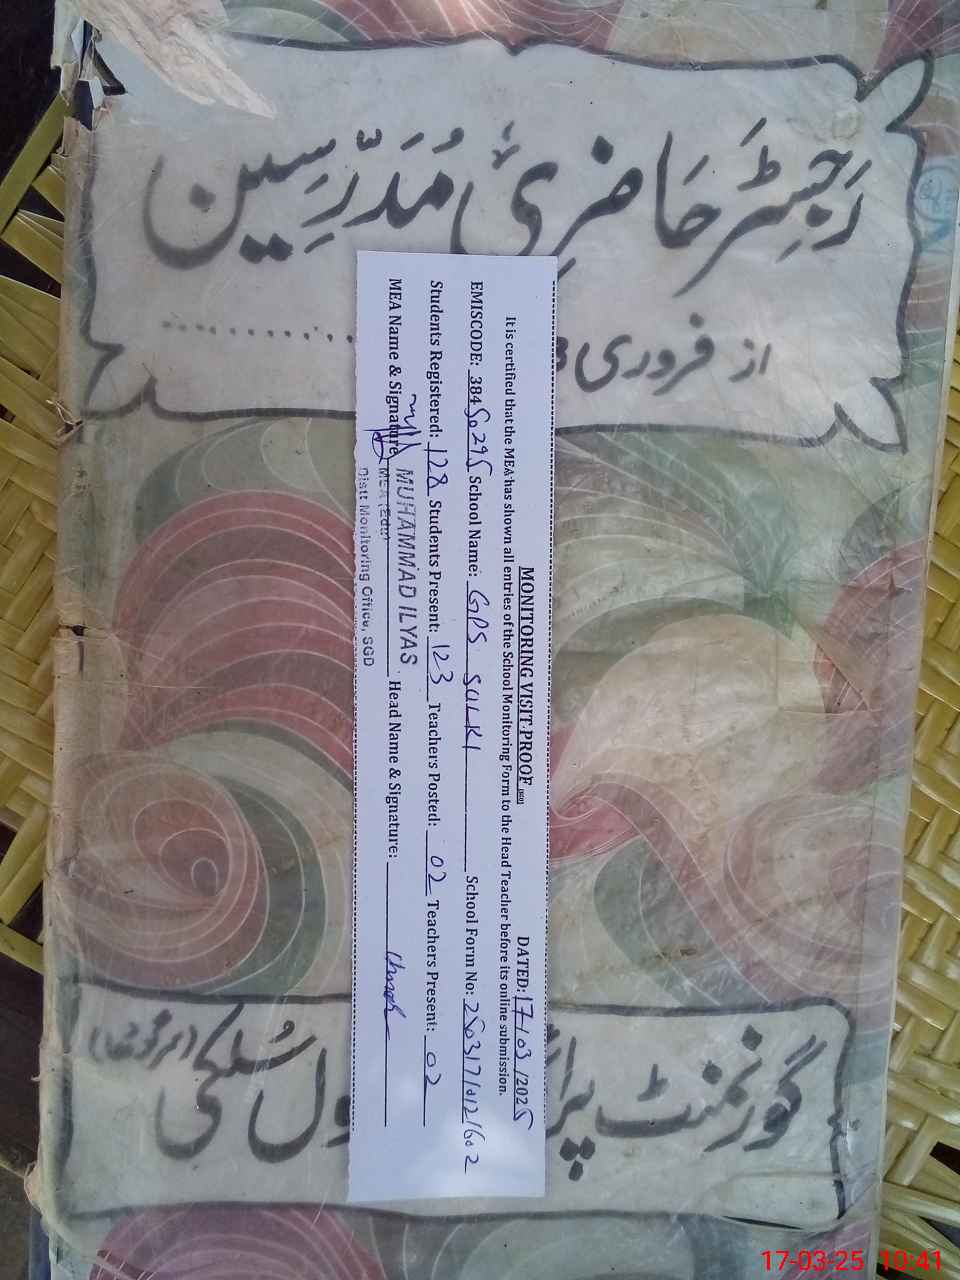 رَجِسٹَر حَاضِرِیٔ مُدَرِّسِین
از فروری
MONITORING VISIT PROOF DATED: 17/03/2025
It is certified that the MEA has shown all entries of the School Monitoring Form to the Head Teacher before its online submission.
EMISCODE: 38450295 School Name: GPS SULKI School Form No:
Students Registered: 128 Students Present: 123 Teachers Posted: 02 Teachers Present: 02
MEA Name & Signature MUHAMMAD ILYAS Head Name & Signature:
MEA (Edu)
Distt Monitoring Office, SGD
گورنمنٹ پرائ ول سُلکی (سرگودھا)
17-03-25 10:41